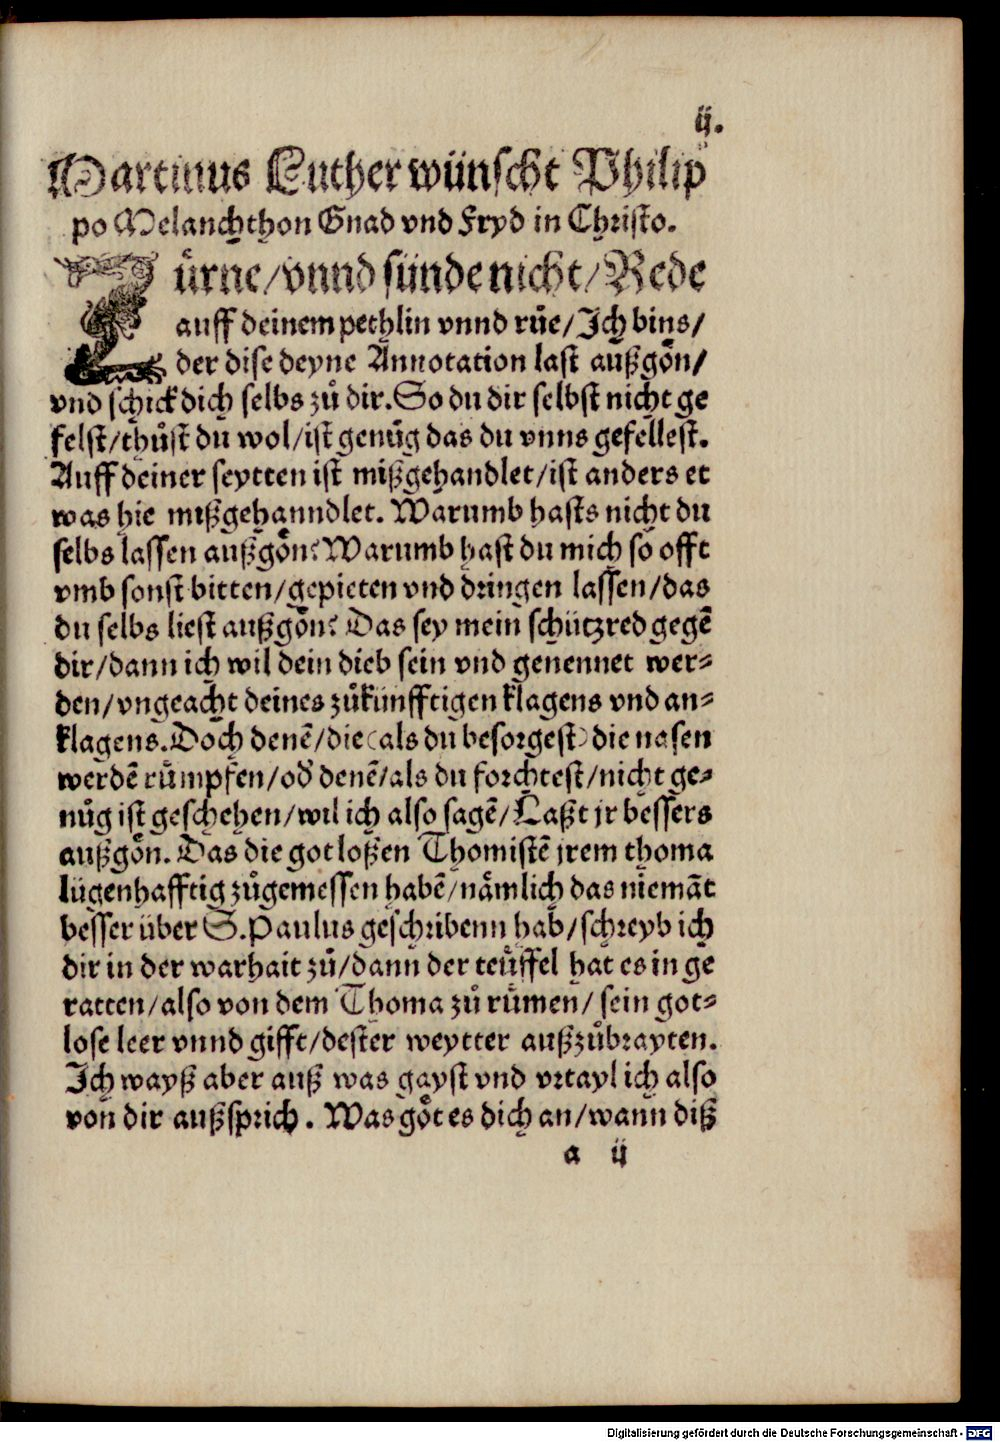 ij.
Martinus Luther wünscht Philip
po Melanchthon Gnad vnd Fryd in Christo.
Zürne/vnnd sünde nicht/Rede
auff deinem pethlin vnnd rüe/Ich bins/
der dise deyne Annotation last außgon/
vnd schick dich selbs zů dir. So du dir selbst nicht ge
felst/thůst du wol/ist genůg das du vnns gefellest.
Auff deiner seytten ist mißgehandlet/ist anders et
was hie mißgehanndlet. Warumb hasts nicht du
selbs lassen außgon? Warumb hast du mich so offt
vmb sonst bitten/gepieten vnd dringen lassen/das
du selbs liest außgon? Das sey mein schützred gegē
dir/dann ich wil dein dieb sein vnd genennet wer⸗
den/vngeacht deines zůkünfftigen klagens vnd an⸗
klagens. Doch denē/die (als du besorgest) die nasen
werdē rümpfen/od' denē/als du forchtest/nicht ge⸗
nůg ist geschehen/wil ich also sagē/Laßt jr bessers
außgon. Das die gotloßen Thomistē jrem thoma
lügenhafftig zůgemessen habē/nämlich das niemāt
besser über S. Paulus geschribenn hab/schreyb ich
dir in der warhait zů/dann der teüffel hat es in ge
ratten/also von dem Thoma zů rümen/ sein got⸗
lose leer vnnd gifft/dester weytter außzůbrayten.
Ich wayß aber auß was gayst vnd vrtayl ich also
von dir außsprich. Was got es dich an/wann diß
a ij
Digitalisierung gefördert durch die Deutsche Forschungsgemeinschaft - DFG